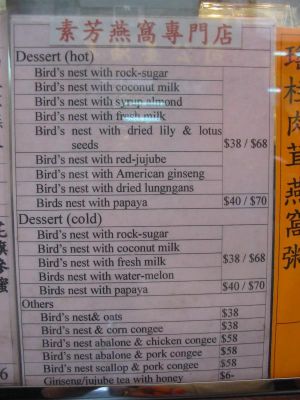 素芳燕窩專門店
Dessert (hot)
Bird's nest with rock-sugar
Bird's nest with coconut milk
Bird's nest with syrup almond
Bird's nest with fresh milk
Bird's nest with dried lily & lotus
seeds $38 / $68
Bird's nest with red-jujube
Bird's nest with American ginseng
Bird's nest with dried lungngans
Birds nest with papaya $40 / $70
Dessert (cold)
Bird's nest with rock-sugar
Bird's nest with coconut milk
Bird's nest with fresh milk $38 / $68
Birds nest with water-melon
Birds nest with papaya $40 / $70
Others
Bird's nest& oats $38
Bird's nest & corn congee $38
Bird's nest abalone & chicken congee $58
Bird's nest abalone & pork congee $58
Bird's nest scallop & pork congee $58
Ginseng/jujube tea with honey $6-
瑤柱肉茸燕窩粥
花旗參蜜
6